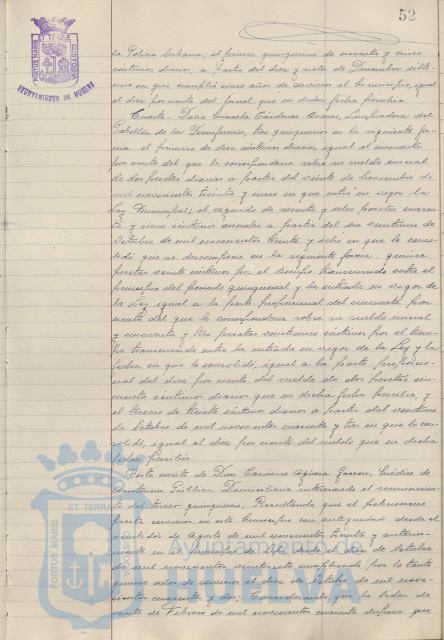 52
PORTUS MARIS ET TERRE CUSTODIA
AYUNTAMIENTO DE HUELVA
la Policía Urbana, el primer quinquenio de noventa y cinco
céntimos diarios, a partir del diez y siete de Diciembre últi-
mo en que cumplió cinco años de servicio al Municipio, igual
al diez por ciento del jornal que en dicha fecha percibía.
Cuarto. Doña Manuela Cárdenas Limpiadora del
Pabellón de la Desinfección, tres quinquenios en la siguiente for-
ma: el primero de diez céntimos diarios, igual al cincuenta
por ciento del que le correspondería sobre su sueldo inicial
de dos pesetas diarias a partir del veinte de Noviembre de
mil novecientos treinta y cinco en que entró en vigor la
Ley Municipal; el segundo de setenta y seis pesetas cuaren-
ta y cinco céntimos anuales a partir del día veintiuno de
Octubre de mil novecientos treinta y seis en que lo conso-
lidó, que se descompone en la siguiente forma: quince
pesetas veinte céntimos por el tiempo transcurrido entre el
principio del periodo quinquenal y la entrada en vigor de
la Ley, igual a la parte proporcional del cincuenta por
ciento del que le correspondería sobre su sueldo inicial
y cincuenta y tres pesetas veintiseis céntimos por el tiem-
po transcurrido entre la entrada en vigor de la Ley y la
fecha en que lo consolidó, igual a la parte proporcio-
nal del diez por ciento del sueldo de dos pesetas cin-
cuenta céntimos diarios que en dicha fecha percibía, y
el tercero de treinta céntimos diarios a partir del veintiuno
de Octubre de mil novecientos cuarenta y tres en que lo con-
solidó, igual al diez por ciento del sueldo que en dicha
fecha percibía.
Visto escrito de Don Médico de
Asistencia Pública Domiciliaria interesando el reconocimien-
to del tercer quinquenio, Resultando que el peticionario
presta servicios en este Municipio con antigüedad desde el
de Agosto de mil novecientos treinta y anterior-
mente en el Municipio de desde el diez de Octubre
de mil novecientos veintisiete cumpliendo por lo tanto
quince años de servicio el diez de Octubre de mil nove-
cientos cuarenta y dos; Considerando que la Orden de
veinte de Febrero de mil novecientos cuarenta dispone que
Ayuntamiento de
HUELVA
PORTUS MARIS ET TERRE